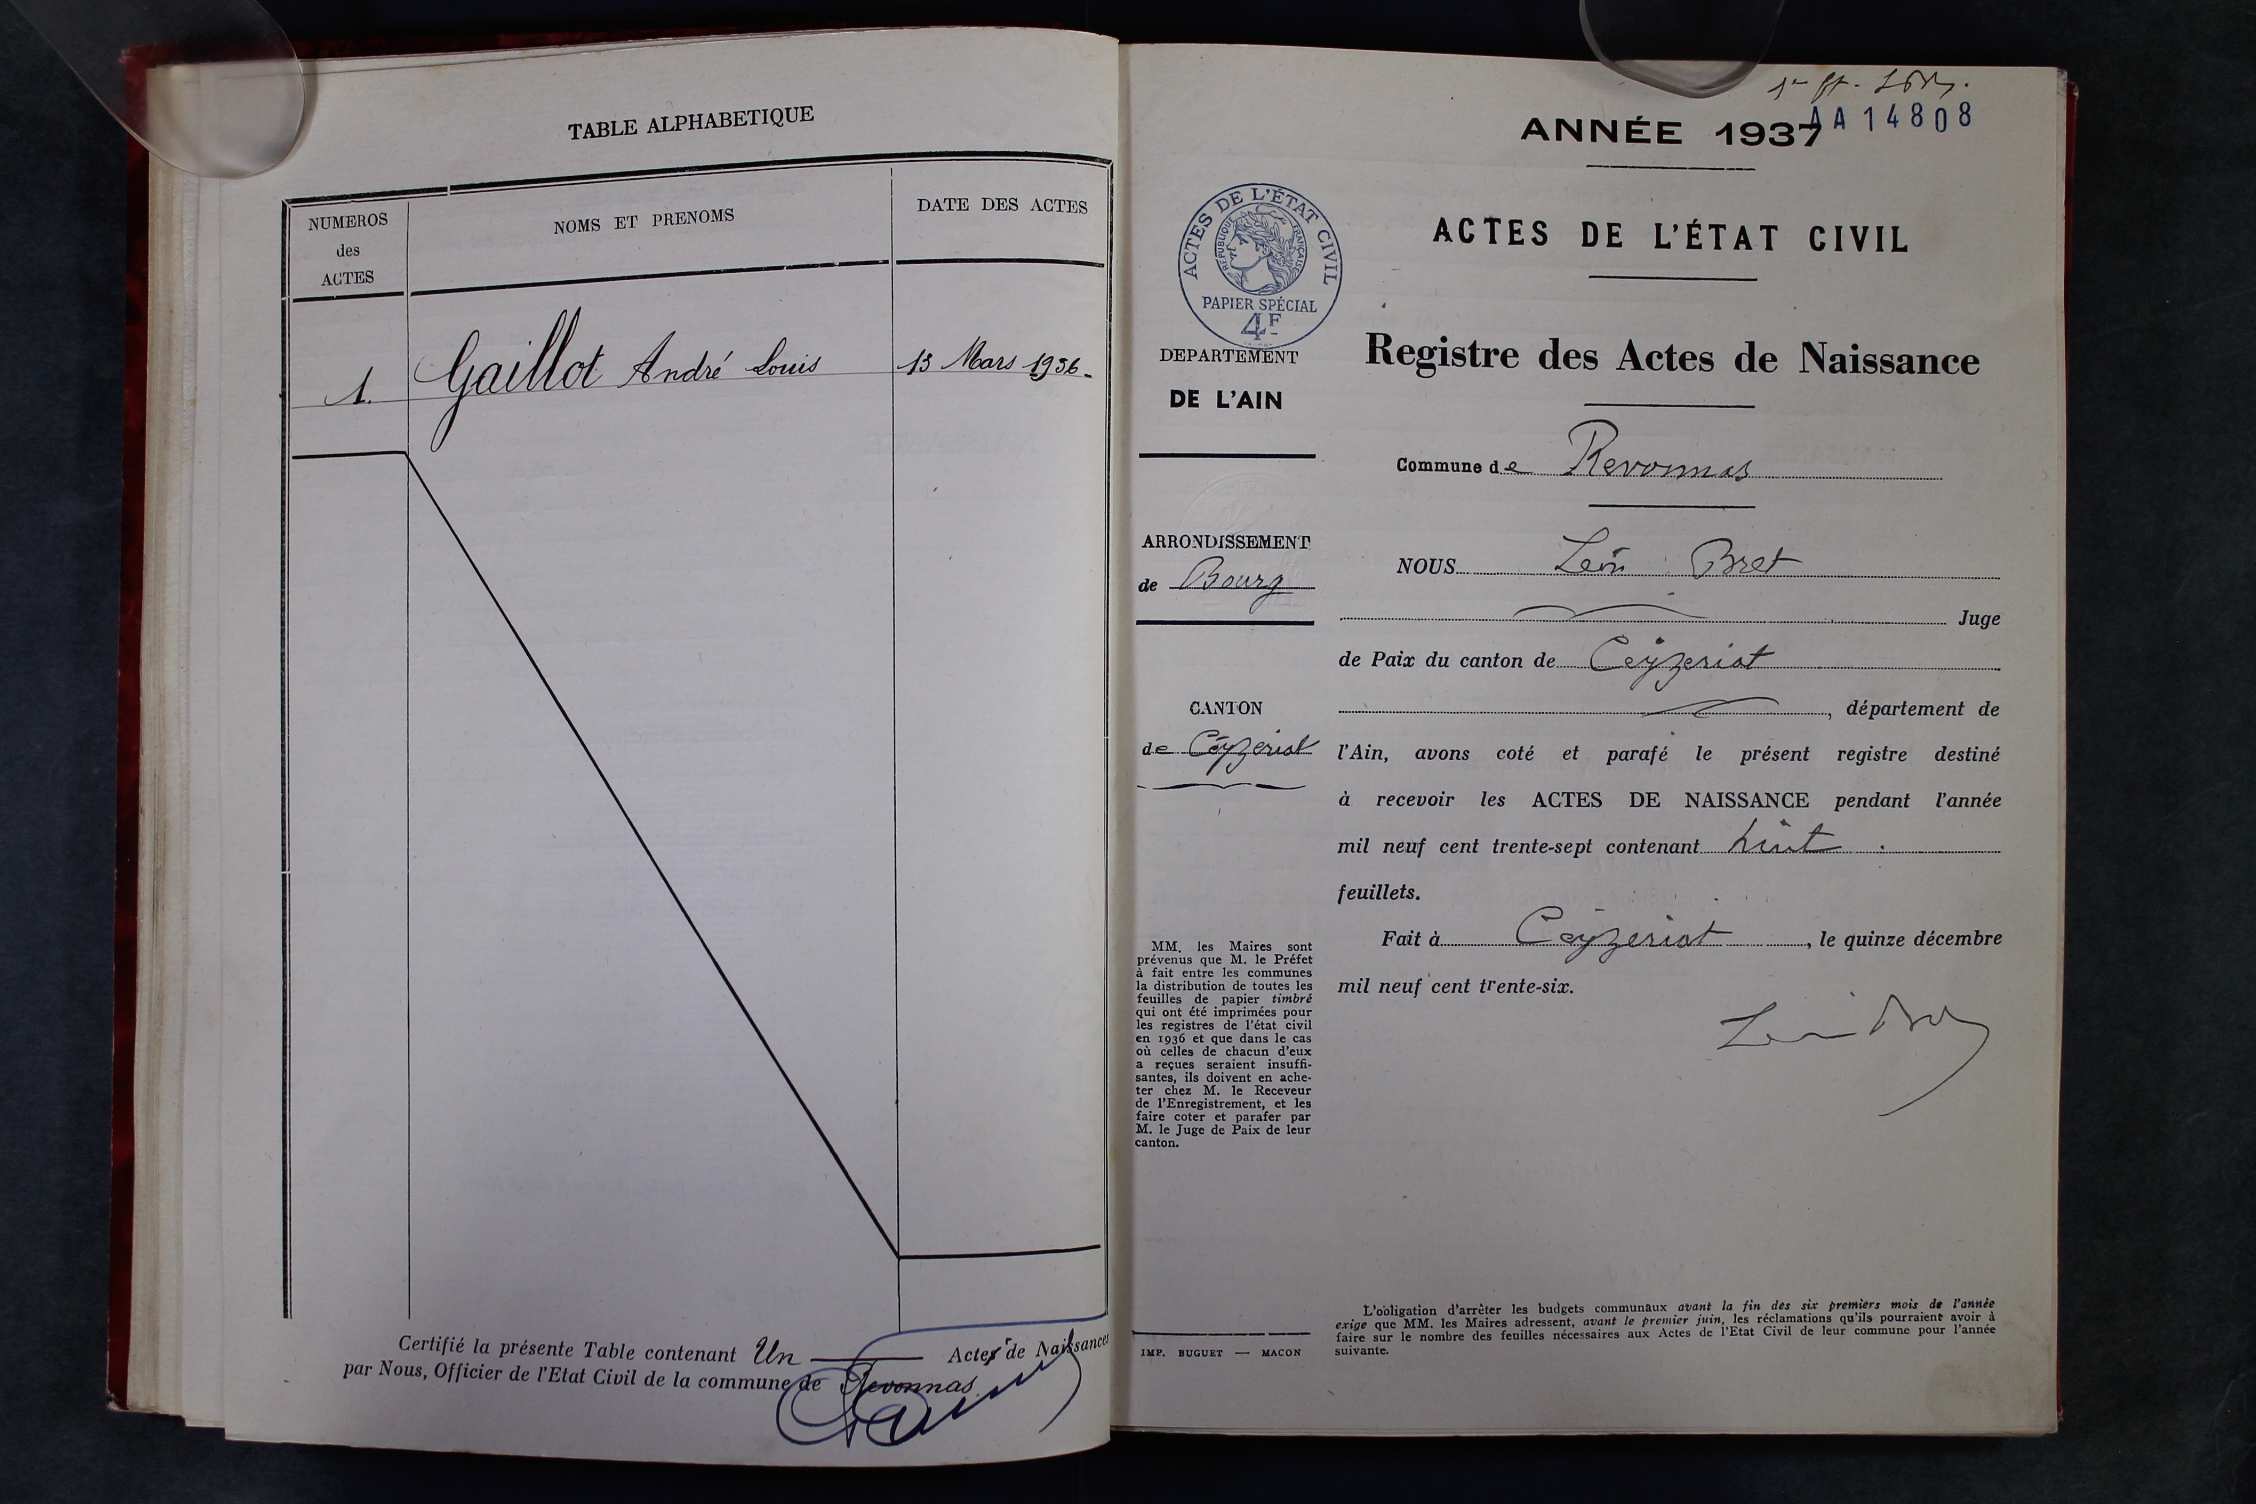 TABLE ALPHABETIQUE
NUMEROS
des
ACTES
NOMS ET PRENOMS
DATE DES ACTES
1. Gaillot André Louis 13 Mars 1936
Certifié la présente Table contenant Un Actes de Naissances
par Nous, Officier de l'Etat Civil de la commune de Revonnas
AA 14808
ANNÉE 1937
ACTES DE L'ÉTAT CIVIL
RÉPUBLIQUE FRANÇAISE
PAPIER SPÉCIAL
4F
DEPARTEMENT
DE L'AIN
ARRONDISSEMENT
de Bourg
CANTON
de Ceyzeriat
MM. les Maires sont
prévenus que M. le Préfet
à fait entre les communes
la distribution de toutes les
feuilles de papier timbré
qui ont été imprimées pour
les registres de l'état civil
en 1936 et que dans le cas
où celles de chacun d'eux
a reçues seraient insuffi-
santes, ils doivent en ache-
ter chez M. le Receveur
de l'Enregistrement, et les
faire coter et parafer par
M. le Juge de Paix de leur
canton.
IMP. BUGUET — MACON
ACTES DE L'ÉTAT CIVIL
Registre des Actes de Naissance
Commune de Revonnas
NOUS Léon Bret
Juge
de Paix du canton de Ceyzeriat
, département de
l'Ain, avons coté et parafé le présent registre destiné
à recevoir les ACTES DE NAISSANCE pendant l'année
mil neuf cent trente-sept contenant huit
feuillets.
Fait à Ceyzeriat, le quinze décembre
mil neuf cent trente-six.
L'obligation d'arrêter les budgets communaux avant la fin des six premiers mois de l'année
exige que MM. les Maires adressent, avant le premier juin, les réclamations qu'ils pourraient avoir à
faire sur le nombre des feuilles nécessaires aux Actes de l'Etat Civil de leur commune pour l'année
suivante.